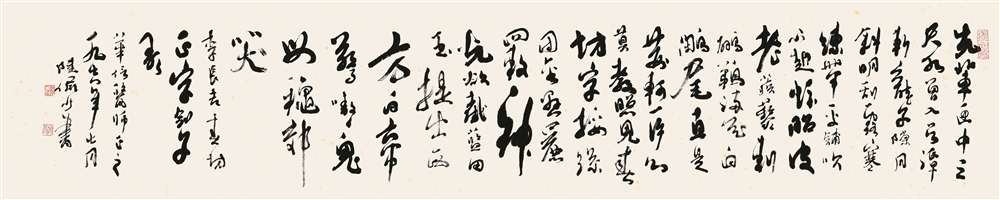 先輩匣中三
尺水曾入吳潭
斬龍子隙月
斜明刮露寒
練帶平鋪吹
不起蛟胎皮
老蒺藜刺
鸊鵜淬花白
鷴尾直是
荊軻一片心
莫教照見春
坊字挼絲
團金懸簏
神
光欲截藍田
玉提出西
方白帝
驚嗷嗷鬼
母秋郊
哭
李長吉春坊
正字劍子
歌
醫師正之
年七月
陸儼少書